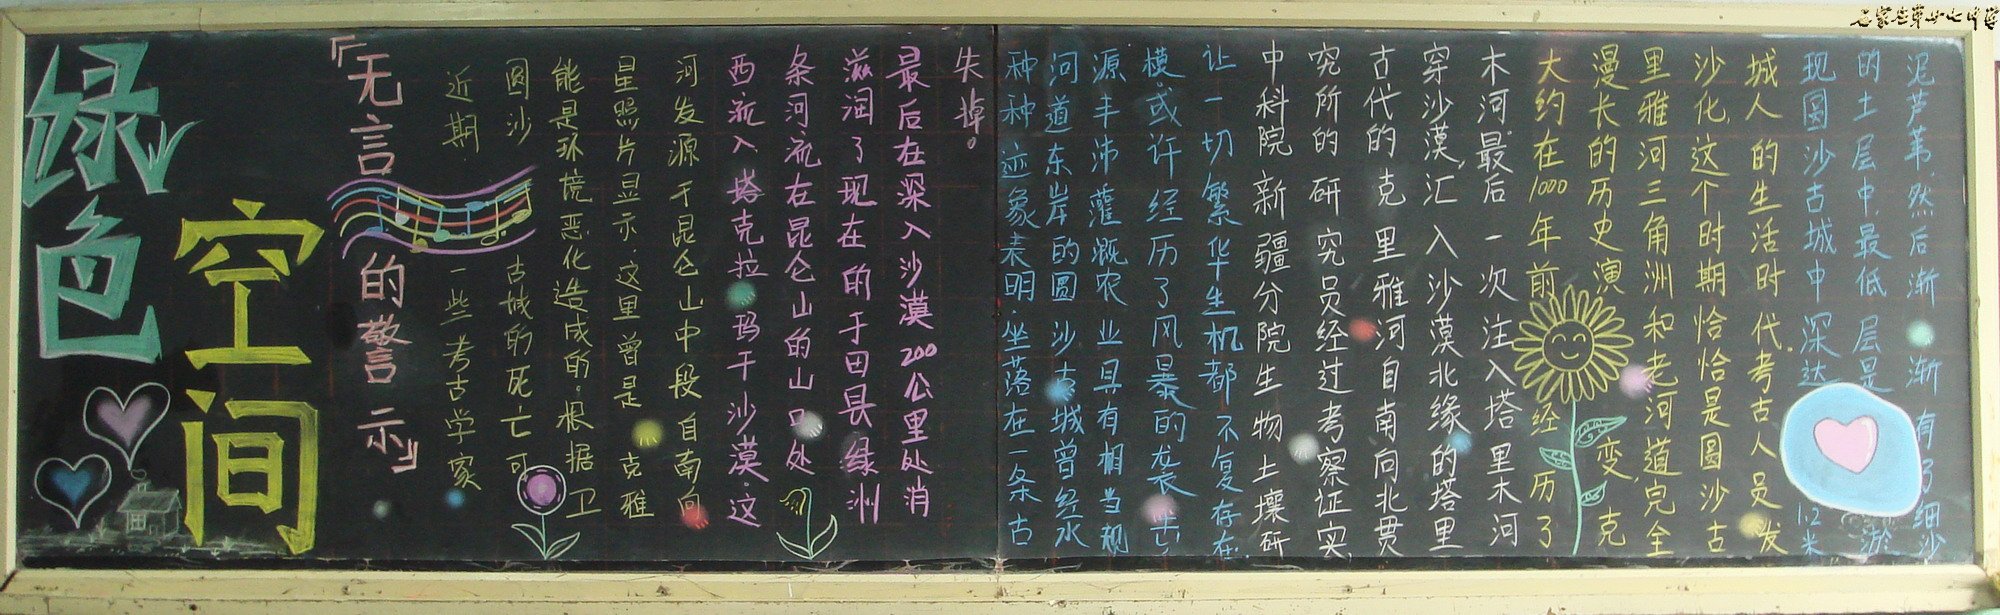 石家庄第廿七中学
绿色
空间
『无言的警示』
近期.一些考古学家
圆沙古城的死亡可
能是环境恶化造成的.根据卫
星照片显示.这里曾是克雅
河发源于昆仑山中段自南向
西流入塔克拉玛干沙漠.这
条河流在昆仑山的山口处
滋润了现在的于田县绿洲
最后在深入沙漠200公里处消
失掉。
种种迹象表明.坐落在一条古
河道东岸的圆沙古城曾经水
源丰沛灌溉农业具有相当规
模.或许经历了风暴的袭击
让一切繁华生机都不复存在
中科院新疆分院生物土壤研
究所的研究员经过考察证实
古代的克里雅河自南向北贯
穿沙漠,汇入沙漠北缘的塔里
木河最后一次注入塔里木河
大约在1000年前经历了
漫长的历史演变,克
里雅河三角洲和老河道完全
沙化.这个时期恰恰是圆沙古
城人的生活时代.考古人员发
现圆沙古城中深达1.2米
的土层中.最低层是淤
泥芦苇.然后渐渐有了细沙